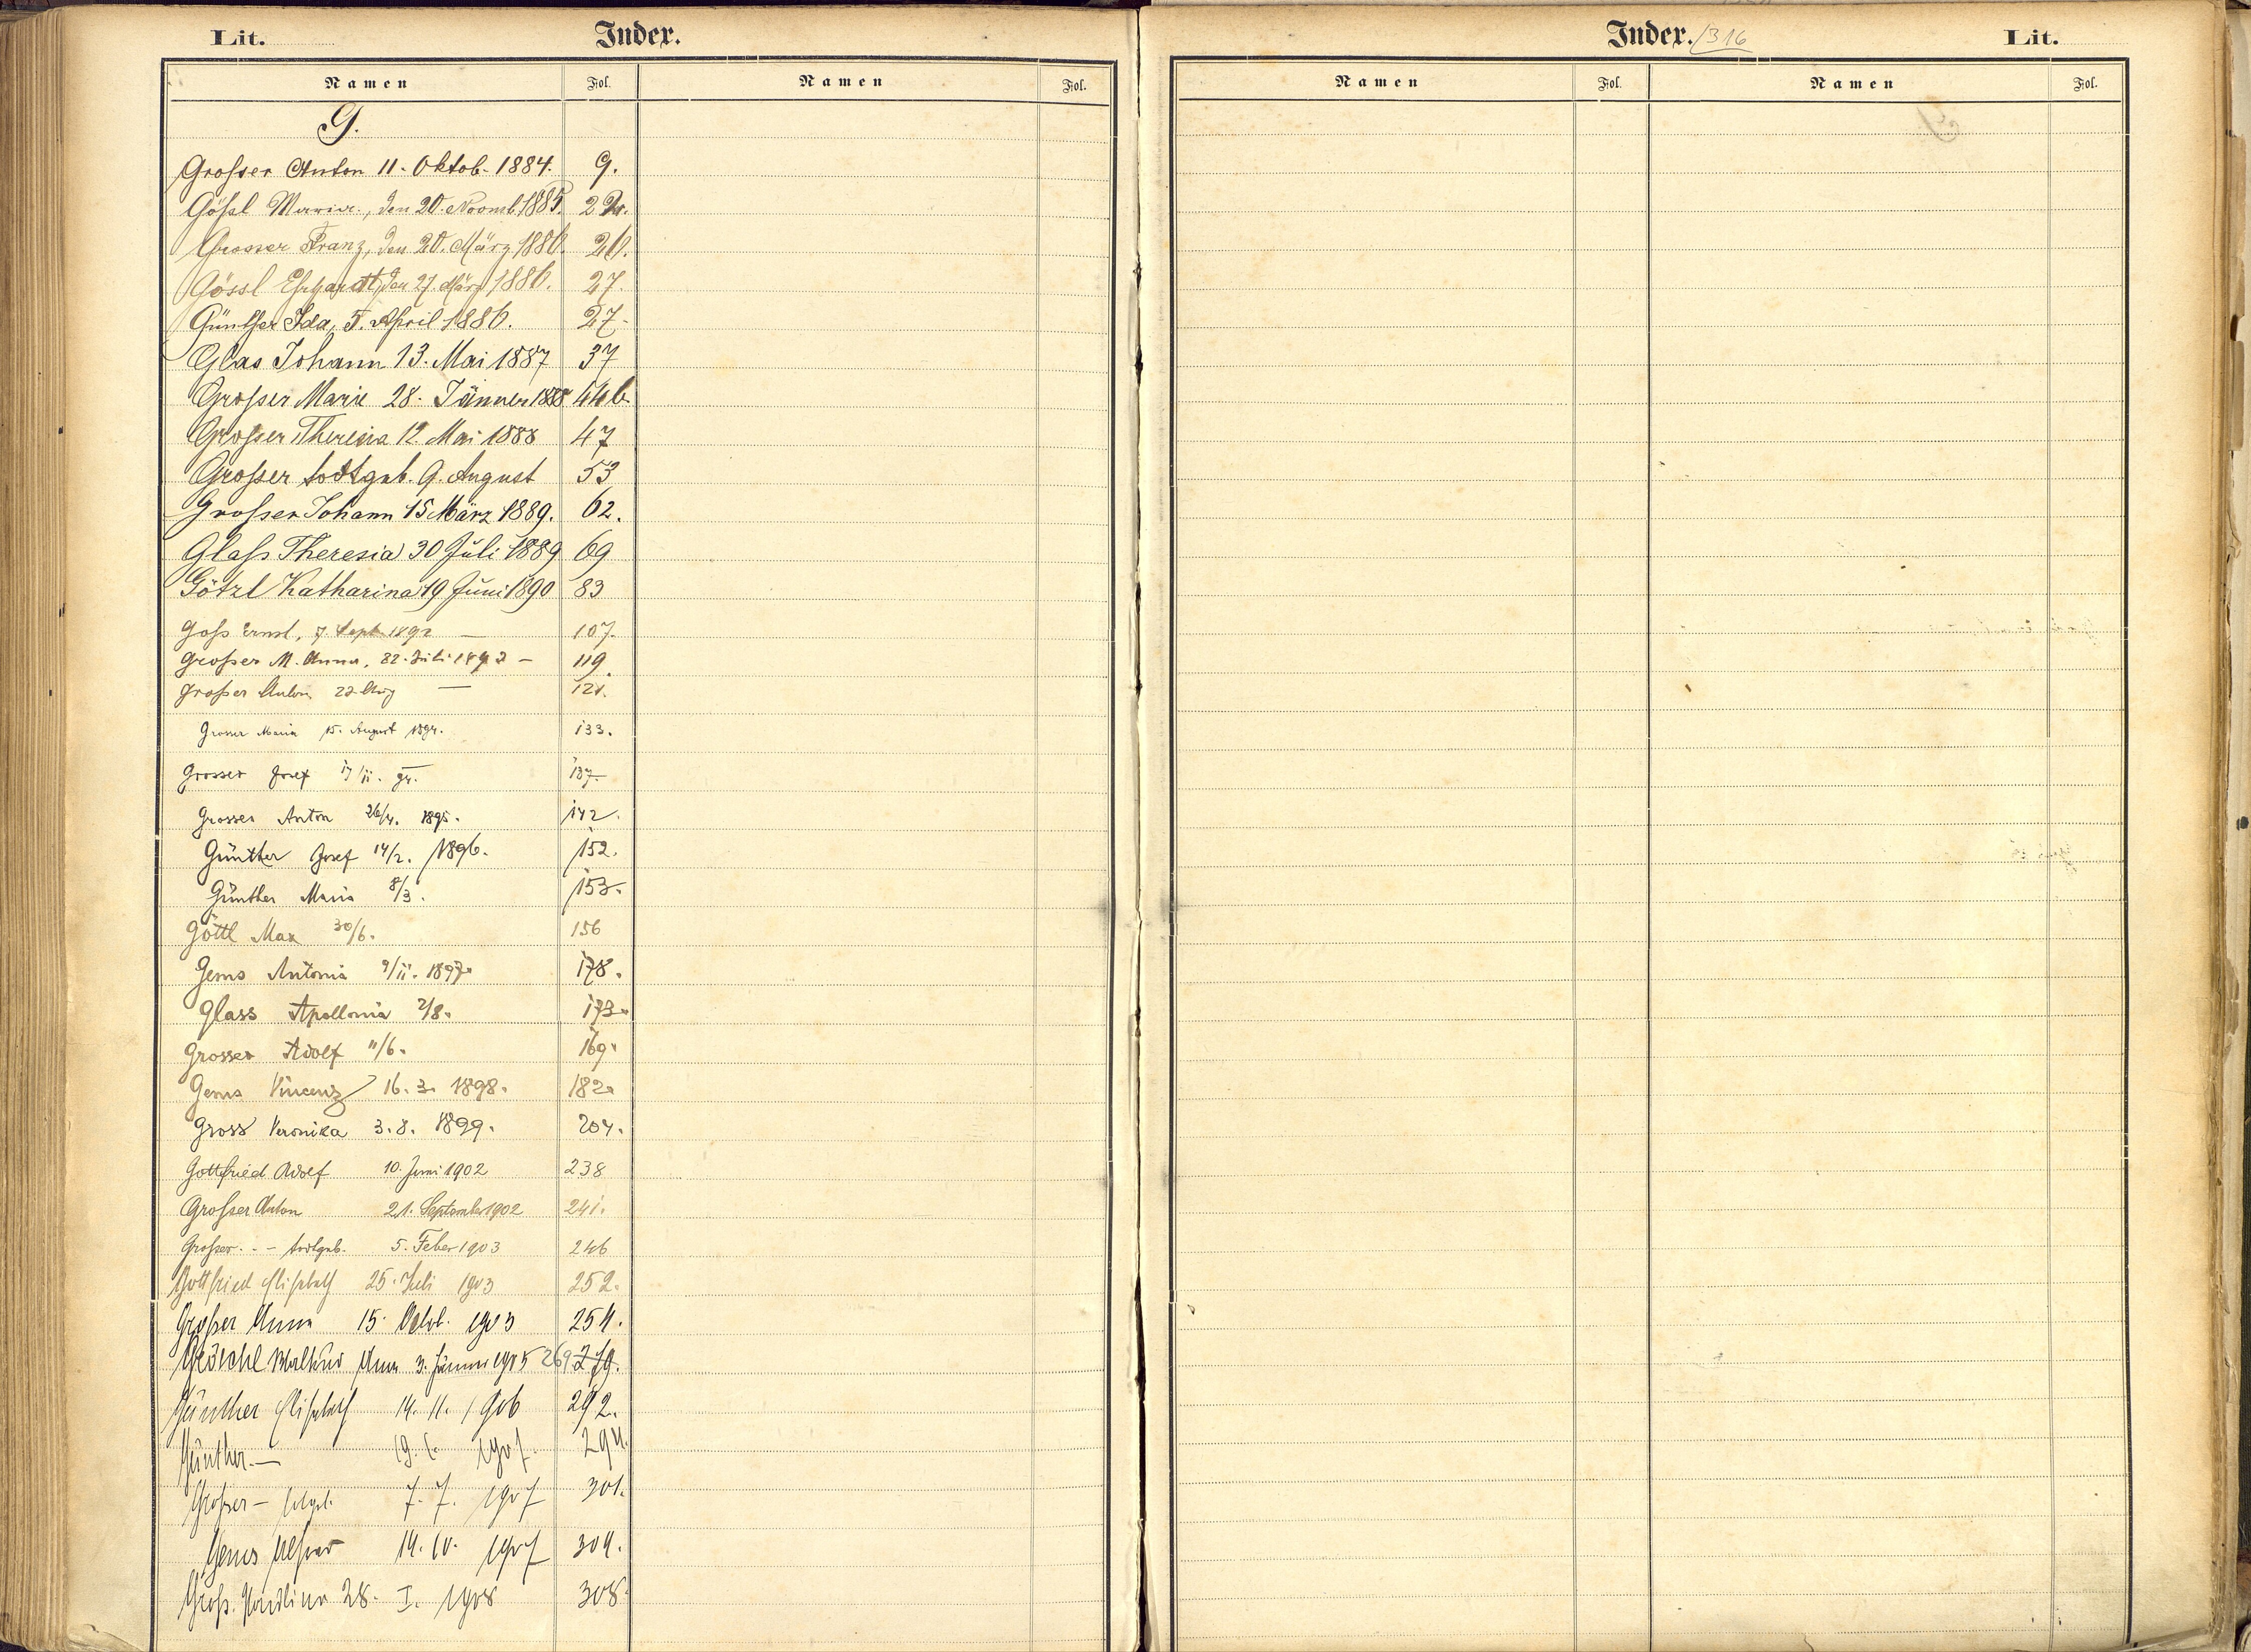 Lit.
Index.
Namen Fol. Namen Fol.
G.
Großer Anton 11. Oktob. 1884. 9.
Gößl Maria, den 20. Novemb. 1885.
Grosser Franz, den 20. März 1886. 26.
Gössl Erhardt, den 27. März 1886. 27.
Günther Ida, 5. April 1886. 27.
Glas Johann 13. Mai 1887 37
Großer Marie 28. Jänner 1888 44b
Großer Theresia 12. Mai 1888 47
Großer todtgeb. 9. August 53
Großer Johann 15 März 1889. 62.
Glaß Theresia 30 Juli 1889 69
Götzl Katharina 19 Juni 1890 83
Goß Ernst, 7. Sept. 1892 — 107.
Großer M. Anna, 22. Juli 1893 — 119.
Großer Anton 22 Aug — 121.
Grosser Maria 15. August 1894. 133.
Grosser Josef 17/11. 94. 137.
Grosser Anton 26/4. 1895. 142.
Günther Josef 14/2. 1896. 152.
Günther Maria 8/3. 153.
Göttl Max 30/6. 156
Gems Antonia 9/11. 1897. 178.
Glass Apollonia 2/8. 173.
Grosser Adolf 11/6. 169.
Gems Vincenz 16. 3. 1898. 182.
Gross Veronika 3. 8. 1899. 204.
Gottfried Adolf 10. Juni 1902 238
Großer Anton 21. September 1902 241.
Großer - - todtgeb. 5. Feber 1903 246
Gottfried Elisabeth 25. Juli 1903 252.
Großer Anna 15. Oktob. 1903 254.
Gröschl Anna 3. Jänner 1905 269 279.
Günther Elisabeth 14. 11. 1906 292.
Günther — 19. 1. 1907. 294.
Großer — todtgeb. 7. 7. 1907 301.
Gems 14. 10. 1907 304.
Groß 28. I. 1908 308.
Index. 316
Lit.
Namen Fol. Namen Fol.